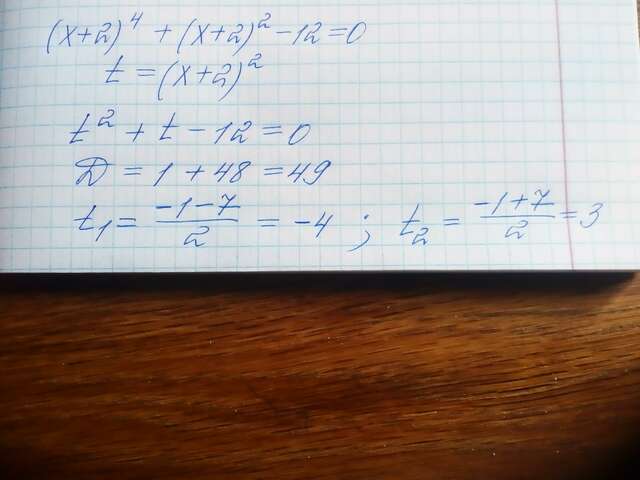 (x+2)⁴ + (x+2)² - 12 = 0
t = (x+2)²
t² + t - 12 = 0
D = 1 + 48 = 49
t₁ = (-1-7)/2 = -4 ; t₂ = (-1+7)/2 = 3